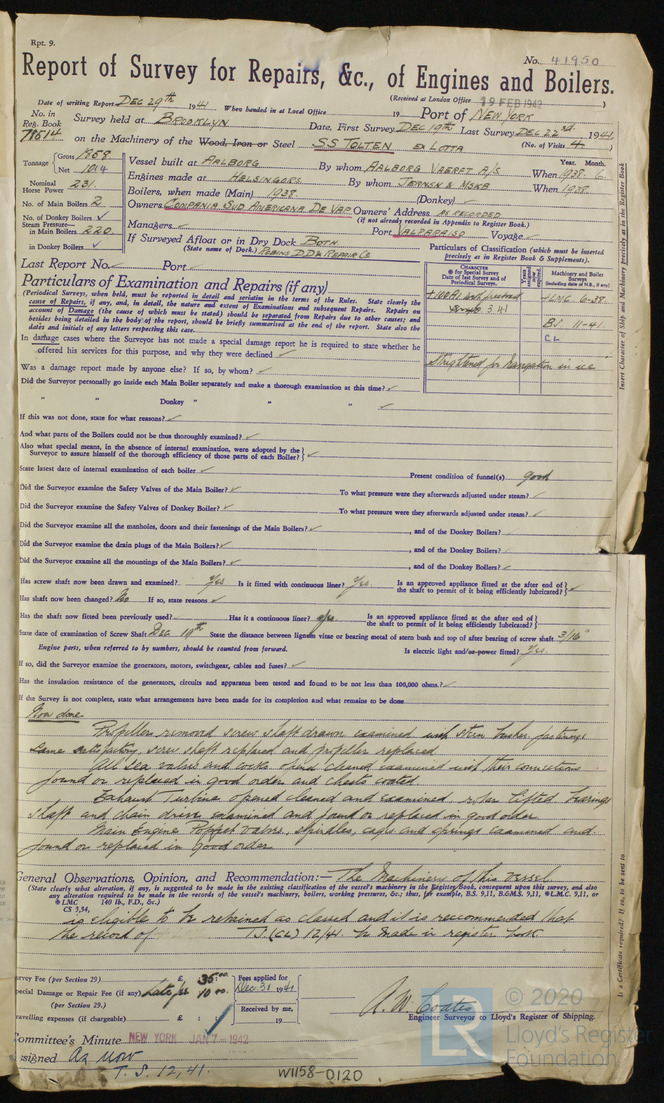 Rpt. 9.
No. 41950
Report of Survey for Repairs, &c., of Engines and Boilers.
(Received at London Office 19 FEB 1942)
Date of writing Report DEC 29th 1941 When handed in at Local Office 19 Port of NEW YORK
No. in Reg. Book Survey held at BROOKLYN Date, First Survey DEC 19th Last Survey DEC 22nd 1941
on the Machinery of the Wood, Iron or Steel S.S TOLTEN EX LOTTA (No. of Visits 4)
Tonnage Gross 1968 Net 1014
Vessel built at AALBORG By whom AALBORG VAERFT A/S When 1938 Year. Month. 6
Engines made at HELSINGORS By whom When 1938
Nominal Horse Power 231
Boilers, when made (Main) 1938 (Donkey) ✓
No. of Main Boilers 2
Owners COMPANIA SUD AMERICANA DE VAP. Owners' Address AS RECORDED
(if not already recorded in Appendix to Register Book.)
No. of Donkey Boilers ✓
Managers ✓ Port VALPARAISO Voyage ✓
Steam Pressure— in Main Boilers 220
in Donkey Boilers ✓
If Surveyed Afloat or in Dry Dock BOTH
(State name of Dock.) ROBINS D.D & REPAIR CO
Particulars of Classification (which must be inserted precisely as in Register Book & Supplements).
Last Report No. ✓ Port ✓
CHARACTER
Machinery and Boiler Surveys
(including date of N.B., if any)
3.41
+LMC 6-38
BS 11-41
CL
Strengthened for Navigation in ice
Insert Character of Ship and Machinery precisely as in the Register Book
Particulars of Examination and Repairs (if any)
(Periodical Survey, when held, must be reported in detail and seriatim in the terms of the Rules. State clearly the
cause of Repairs, if any, and, in detail, the nature and extent of Examinations and subsequent Repairs. Repairs on
account of Damage (the cause of which must be stated) should be separated from Repairs due to other causes; and
besides being detailed in the body of the report, should be briefly summarised at the end of the report. State also the
dates and initials of any letters respecting this case.
In damage cases where the Surveyor has not made a special damage report he is required to state whether he
offered his services for this purpose, and why they were declined ✓
Was a damage report made by anyone else? If so, by whom? ✓
Did the Surveyor personally go inside each Main Boiler separately and make a thorough examination at this time? ✓
" " Donkey " " " ✓
If this was not done, state for what reasons? ✓
And what parts of the Boilers could not be thus thoroughly examined? ✓
Also what special means, in the absence of internal examination, were adopted by the
Surveyor to assure himself of the thorough efficiency of those parts of each Boiler? ✓
State latest date of internal examination of each boiler ✓ Present condition of funnel(s) good
Did the Surveyor examine the Safety Valves of the Main Boiler? ✓ To what pressure were they afterwards adjusted under steam? ✓
Did the Surveyor examine the Safety Valves of Donkey Boiler? ✓ To what pressure were they afterwards adjusted under steam? ✓
Did the Surveyor examine all the manholes, doors and their fastenings of the Main Boilers? ✓, and of the Donkey Boilers? ✓
Did the Surveyor examine the drain plugs of the Main Boilers? ✓, and of the Donkey Boilers? ✓
Did the Surveyor examine all the mountings of the Main Boilers? ✓, and of the Donkey Boilers? ✓
Has screw shaft now been drawn and examined? Yes Is it fitted with continuous liner? Yes. Is an approved appliance fitted at the after end of the shaft to permit of it being efficiently lubricated? ✓
Has shaft now been changed? No If so, state reasons ✓
Has the shaft now fitted been previously used? ✓ Has it a continuous liner? Is an approved appliance fitted at the after end of the shaft to permit of it being efficiently lubricated?
State date of examination of Screw Shaft Dec 19th State the distance between lignum vitae or bearing metal of stern bush and top of after bearing of screw shaft 3/16"
Engine parts, when referred to by numbers, should be counted from forward. Is electric light and/or power fitted? Yes.
If so, did the Surveyor examine the generators, motors, switchgear, cables and fuses? ✓
Has the insulation resistance of the generators, circuits and apparatus been tested and found to be not less than 100,000 ohms? ✓
If the Survey is not complete, state what arrangements have been made for its completion and what remains to be done
Now done
Propeller removed screw shaft drawn examined with stern bush fastenings
same satisfactory, screw shaft replaced and propeller replaced
All sea valves and cocks opened cleaned examined with their connections
found or replaced in good order and chests coated.
Exhaust Turbine opened cleaned and examined, rotor lifted bearings
shaft and chain drive examined and found or replaced in good order
Main Engine Poppet valves, spindles, cages and springs examined and
found or replaced in good order
General Observations, Opinion, and Recommendation:— The Machinery of this Vessel
(State clearly what alteration, if any, is suggested to be made in the existing classification of the vessel's machinery in the Register Book, consequent upon this survey, and also
any alteration required to be made in the records of the vessel's machinery, boilers, working pressures, &c.; thus, for example, B.S. 9,11, B.&M.S. 9,11, LMC 9,11, or
LMC 140 lb., F.D., &c.)
CS 9,34,
is eligible to be retained as classed and it is recommended that
the record of T.S.(CL) 12/41 be made in register book
Is a Certificate required? If so, to be sent to
Survey Fee (per Section 29) £ 35.00 Fees applied for
Special Damage or Repair Fee (if any) Late fee 10.00 Dec 31 1941
(per Section 29.) Received by me,
Travelling expenses (if chargeable) £ : : 19
A. W. Coates
Engineer Surveyor to Lloyd's Register of Shipping.
Committee's Minute NEW YORK JAN 7 - 1942
Assigned As now
T. S. 12,41.
W1158-0120
© 2020
Lloyd's Register
Foundation
LR